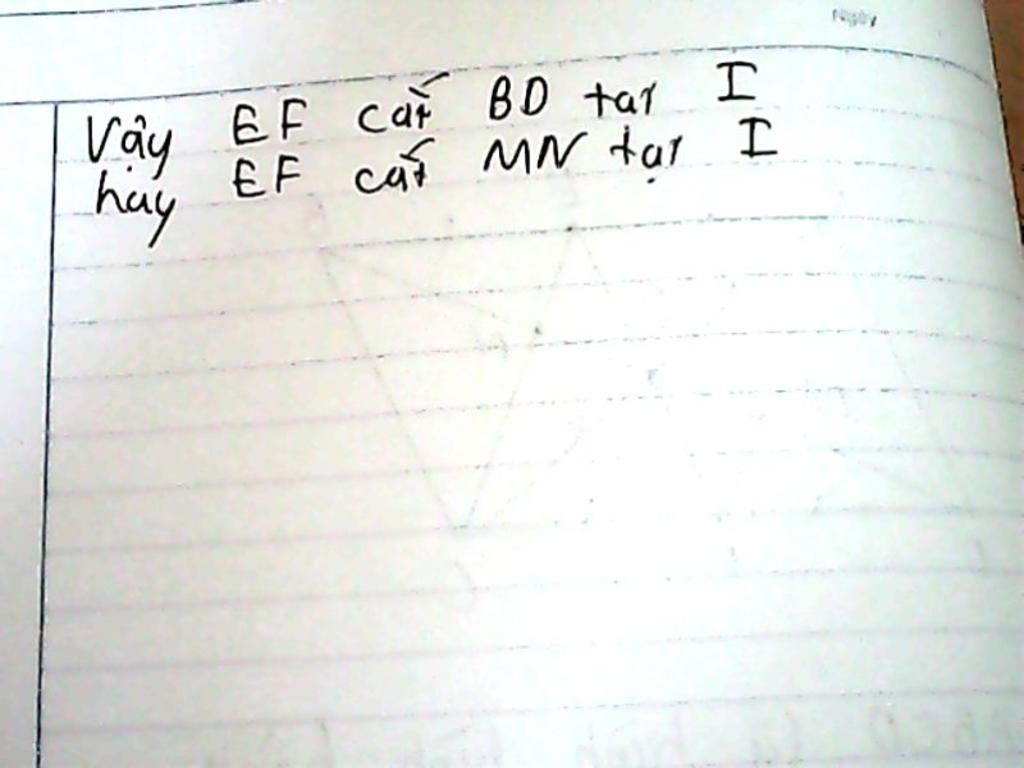 Ngày
Vậy EF cắt BD tại I
hay EF cắt MN tại I